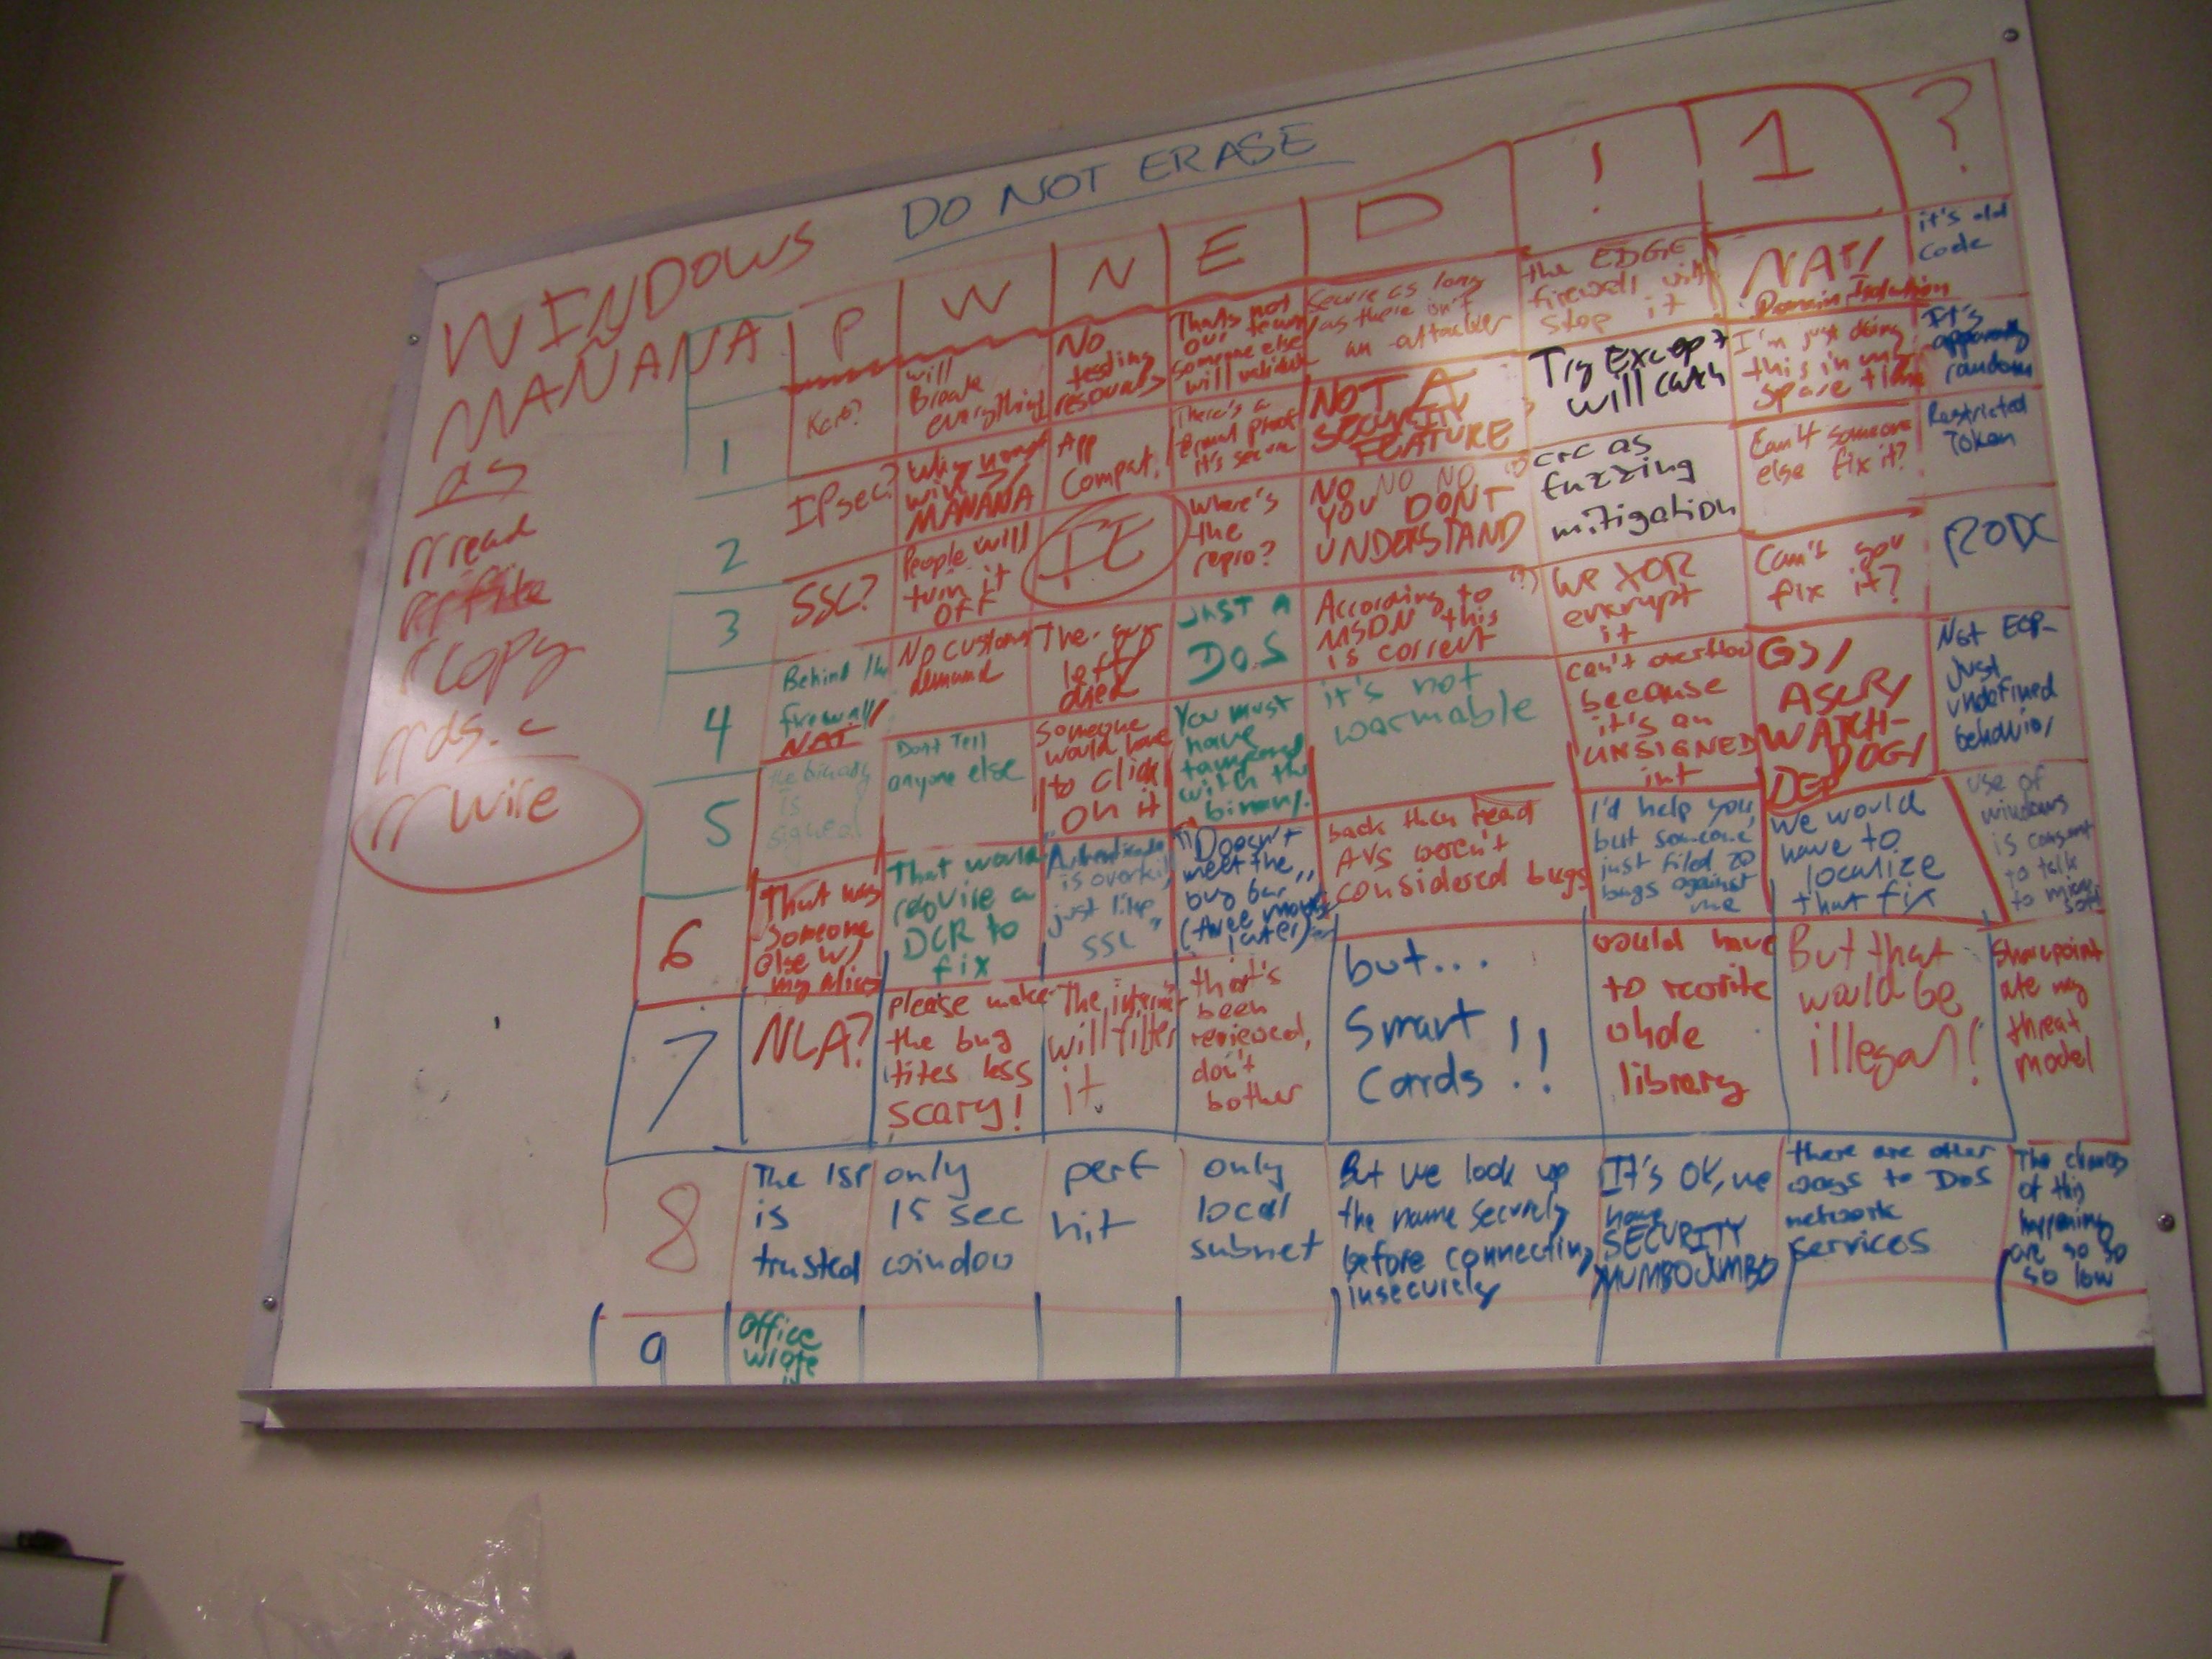 DO NOT ERASE
WINDOWS
MANANA
as
rrread
rcopy
rrds.c
rrwire
P
W
N
E
D
!
1
?
1
Kerb?
will
Break
everything
No
testing
resources
That's not
our team
someone else
will validate
Secure as long
as there isn't
an attacker
the EDGE
firewall will
stop it
NAT/
Domain Isolation
it's old
code
2
IPsec?
MANANA
App
Compat.
There's a
formal proof
it's secure
NOT A
SECURITY
FEATURE
Try Except
will catch
I'm just doing
this in my
spare time
It's
apparently
random
3
SSL?
People will
turn it
off
IE
Where's
the
repro?
NO NO NO
YOU DONT
UNDERSTAND
crc as
fuzzing
mitigation
Can't someone
else fix it?
Restricted
Token
4
Behind the
firewall/
NAT
No customer
demand
The guy
left/
died
Just A
DoS
According to
MSDN this
is correct
We XOR
encrypt
it
Can't you
fix it?
RODC
5
the binary
is
signed
Don't Tell
anyone else
Someone
would have
to click
on it
You must
have
tampered
with the
binary.
it's not
wormable
can't overflow
because
it's an
UNSIGNED
int
GS/
ASLR/
WATCH-
DOG/
DEP
Not EOP-
just
undefined
behavior
6
That was
someone
else w/
my alias
That would
require a
DCR to
fix
is overkill,
just like
SSL"
"Doesn't
meet the
bug bar"
(three months
later)
back then read
AVs weren't
considered bugs
I'd help you,
but someone
just filed 20
bugs against
me
We would
have to
localize
that fix
use of
windows
is consent
to talk
to micro
soft
7
NLA?
please make
the bug
titles less
scary!
The internet
will filter
it.
that's
been
reviewed,
don't
bother
but...
Smart
Cards!!
would have
to rewrite
whole
library
But that
would be
illegal!
Sharepoint
ate my
threat
model
8
The ISP
is
trusted
only
15 sec
window
perf
hit
only
local
subnet
But we look up
the name securely
before connecting
insecurely
It's OK, we
have
SECURITY
MUMBOJUMBO
there are other
ways to DoS
network
services
The chances
of this
happening
are so so
so low
9
Office
wrote
it